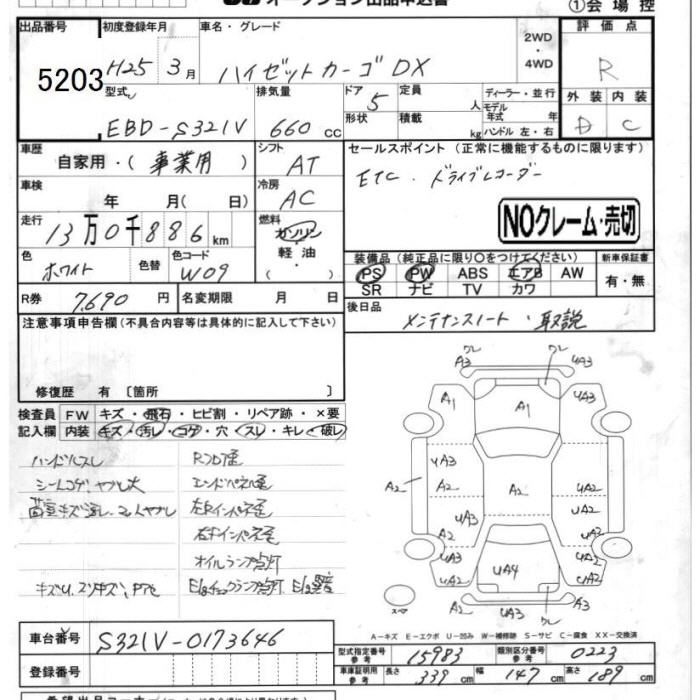 オークション出品申込書
①会場控
出品番号 5203
初度登録年月 H25 3月
車名・グレード ハイゼットカーゴDX
2WD・4WD
評価点 R
型式 EBD-S321V
排気量 660 cc
ドア 5
定員 人
形状
積載 kg
ディーラー・並行
モデル年式 年
ハンドル 左・右
外装 D
内装 C
車歴 自家用・(事業用)
シフト AT
セールスポイント(正常に機能するものに限ります)
ETC. ドライブレコーダー
車検 年 月(日)
冷房 AC
NOクレーム・売切
走行 13万0千886km
燃料 ガソリン・軽油・( )
色 ホワイト
色替
色コード W09
装備品(純正品に限り○をつけてください)
PS PW ABS エアB AW
SR ナビ TV カワ
新車保証書 有・無
R券 7,690円
名変期限 月 日
後日品 メンテナンスノート・取説
注意事項申告欄(不具合内容等は具体的に記入して下さい)
修復歴 有〔箇所 〕
検査員記入欄
FW キズ・飛石・ヒビ割・リペア跡・×要
内装 キズ・汚レ・コゲ・穴・スレ・キレ・破レ
ハンドルスレ
Rフロア歪
シートコゲ、ヤブレ大
エンドパネル歪
左Rインパネ歪
右Rインパネ歪
オイルランプ点灯
Egチェックランプ点灯 Eg異音
ワレ ワレ
A3 UA3
A1 A1 UA3
UA3
A2 A2 A2 UA2
UA3 UA2
UA3 UA3
UA2 UA4 UA2
スペア
A3 ワレ A2
A-キズ E-エクボ U-凹み W-補修跡 S-サビ C-腐食 XX-交換済
車台番号 S321V-0173646
登録番号
型式指定番号 参考 15983
類別区分番号 参考 0223
車庫証明用 参考 長さ 339 cm 幅 147 cm 高さ 189 cm